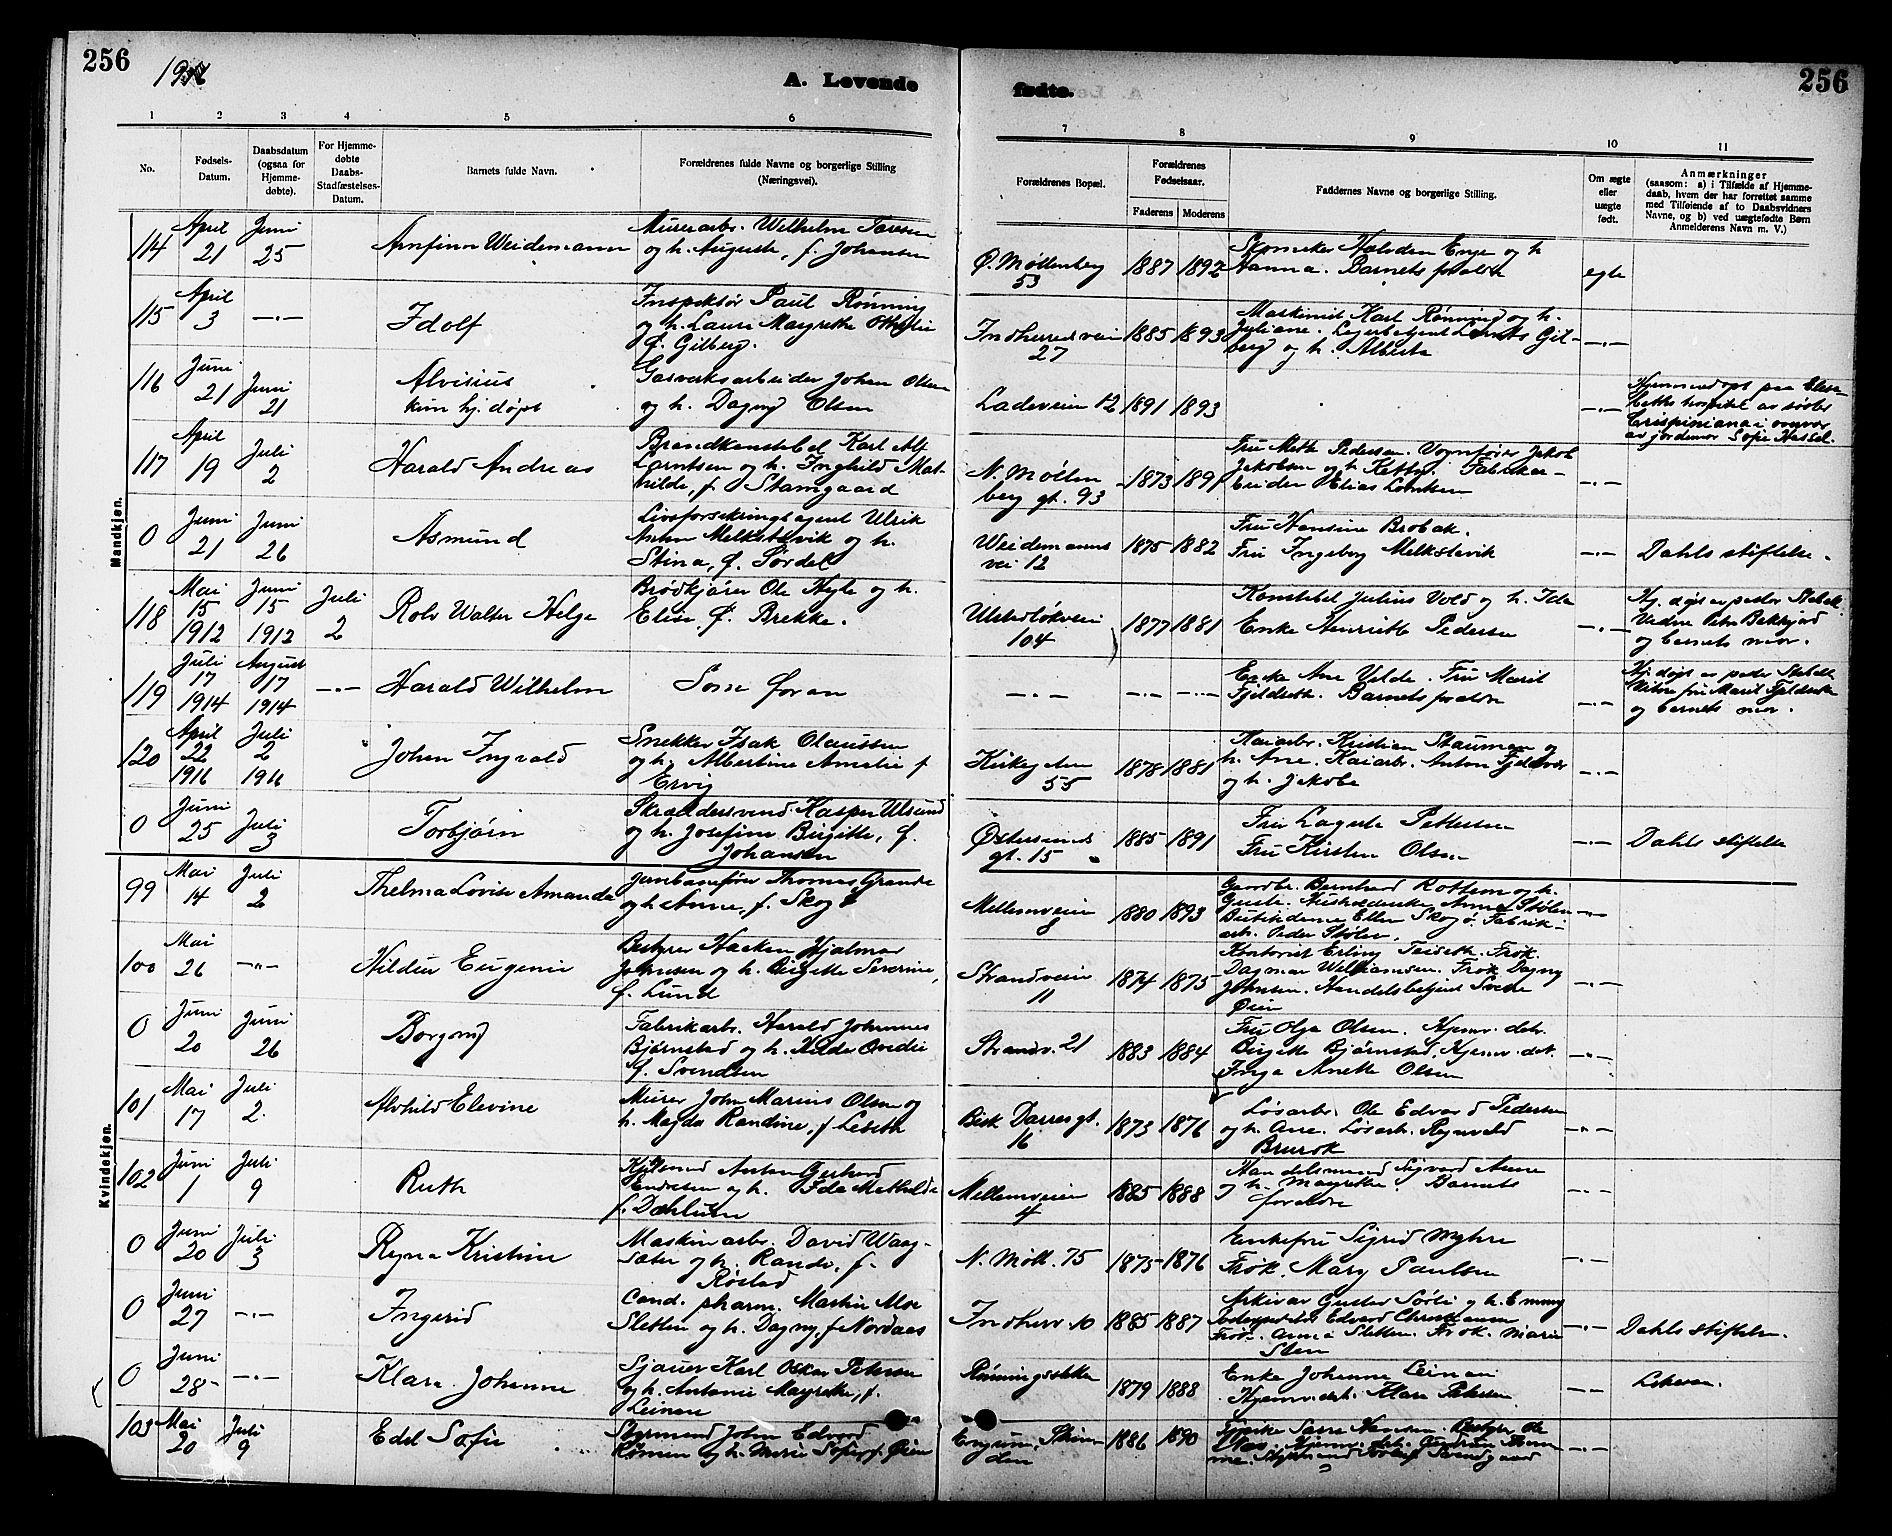 256
256
A. Levende
fødte.
1 2 3 4 5 6 7 8 9 10 11
No.
Fødsels-
Datum.
Daabsdatum
(ogsaa for
Hjemme-
døbte).
For Hjemme-
døbte
Daabs-
Stadfæstelses-
Datum.
Barnets fulde Navn.
Forældrenes fulde Navne og borgerlige Stilling
(Næringsvei).
Forældrenes Bopæl.
Forældrenes
Fødselsaar.
Faderens Moderens
Faddernes Navne og borgerlige Stilling.
Om ægte
eller
uægte
født.
Anmærkninger
(saasom: a) i Tilfælde af Hjemme-
daab, hvem der har forrettet samme
med Tilføiende af to Daabsvidners
Navne, og b) ved uægtefødte Børn
Anmelderens Navn m. V.)
Mandkjøn.
114
April
21
Juni
25
Arnfinn Weidemann
Murerarb. Wilhelm
og h. Augusta, f. Johansen
Ø. Møllenberg
53
1887 1892
Skomaker Halvdan Enge og h.
Hanna. Barnets foreldre
egte
115
April
3
—·—
Idolf
Inspektør Paul Rønning
og h. Laura Margrethe
f. Gilberg.
Indherredsveien
27
1885 1893
Maskinist Karl Rønning og h.
Juliane. Lorents Gil-
berg og h. Alberta
—·—
116
Juni
21
Juni
21
Alvisius
kun hj. døpt
Gasverksarbeider Johan Olsen
og h. Dagny Olsen
Ladeveien 12
1891 1893
—·—
Hjemmedøpt paa Elisa-
beths hospital av søster
Crispiniana i nærvær
av jordmor Sofie Hassel.
117
April
19
Juli
2
Harald Andreas
Brandkonstabel Karl Alf
Lorntsen og h. Inghild Mat-
hilde, f. Stamgaard
N. Møllen
berg gt. 93
1873 1891
Fru Meth Pedersen. Vognfører Jakob
Jakobsen og h. Fabrikar-
beider Elias Lorntsen
—·—
0
Juni
21
Juni
26
Asmund
Livsforsikringsagent Ulrik
Anton Melkstevik og h.
Stina, f. Sørdal
Weidemanns
vei 12
1875 1882
Fru Hansine Brobak.
Fru Ingeborg Melkstevik
—·—
Dahls stiftelse.
118
Mai
15
1912
Juni
15
1912
Juli
2
Rolv Walter Helge
Brødkjører Ole Hegle og h.
Elise, f. Brekke.
Ulstadløkveien
104
1877 1881
Konstabel Julius Vold og h. Ida
Enke Henriette Pedersen
—·—
og barnets mor.
119
Juli
17
1914
August
17
1914
—·—
Harald Wilhelm
Som foran
—·—
—·—
—·—
Enke Ane Velde. Fru Marit
Fjeldseth. Barnets foreldre
—·—
og barnets mor.
120
April
22
1916
Juli
2
1916
Johan Ingvald
Snekker Isak Olaussen
og h. Albertine Amalie f.
Ervig
Kirkegaten
55
1878 1881
Kaiarb. Kristian Stauman og
h. Ane. Kaiarb. Anton
og h. Jakobe
—·—
0
Juni
25
Juli
3
Torbjørn
Skræddersvend Kasper Ulsund
og h. Josefine Birgitte, f.
Johansen
Østersunds
gt. 15
1885 1891
Fru Lagerta Pettersen
Fru Kirsten Olsen
—·—
Dahls stiftelse
Kvindekjøn.
99
Mai
14
Juli
2
Thelma Lovise Amanda
Jernbanefører Thomas Grande
og h. Anna, f. Skog
Mellemveien
8
1880 1893
Gaardbr. Bernhard Rottem og h.
Ellen Skog. Fabrik-
arb. Peder Stølen.
—·—
100
Mai
26
—·—
Hildur Eugenie
Bestyrer Haakon Hjalmar
Johnsen og h. Birgitte Severine,
f. Lund
Strandveien
11
1874 1875
Kontorist Erling Teiseth. Frøk.
Dagmar Williamsen. Frøk. Dagny
Johnsen. Handelsbetjent Sverre
Øien
—·—
0
Juni
20
Juni
26
Borgny
Fabrikarb. Harald Johannes
Bjørnstad og h. Hilda Ovedie
f. Svendsen
Strandv. 21
1883 1884
Fru Olga Olsen. Hjemv. dat.
Birgitte Bjørnstad. Hjemv. dat.
Inga Anette Olsen
—·—
101
Mai
17
Juli
2.
Alvhild Elevine
Murer John Marius Olsen og
h. Magda Randine, f. Leseth
Bisk. Darres gt.
16
1873 1876
Løsarbr. Ole Edvard Pedersen
og h. Ane. Løsarb. Reginald
Brurok
—·—
102
Juni
1
Juli
9
Ruth
Anton Gerhard
og h. Ida Mathilde
f. Dahlsen
Mellemveien
4
1885 1888
Handelsmand Sigvard Aune
og h. Margrethe. Barnets
foreldre
—·—
0
Juni
20
Juli
3
Ragna Kristine
Maskinarb. David Waag-
og h. Randi, f.
Røstad
N. Møll. 75
1875 1876
Enkefru Sigrid Myhre
Frøk. Mary Paulsen
—·—
0
Juni
27
—·—
Ingerid
Cand. pharm. Martin Moe
Sletten og h. Dagny, f. Nordaas
Indherr. 10
1885 1887
Arkivar Gustav Sørli og h. Emmy
Edvard Christiansen
Frøk. Anna Sletten. Frøk. Marie
Sten
—·—
Dahls stiftelse.
0
Juni
28
—·—
Klara Johanne
Sjauer Karl Oskar Petersen
og h. Antonie Margrethe, f.
Leinan
Rønningsletta
1879 1888
Enke Johanna Leinan
Hjemv. dat. Klara Petersen
—·—
103
Mai
20
Juli
9
Edel Sofie
Styrmand John Edvard
og h. Marie Sofie, f. Øien
1886 1890
—·—